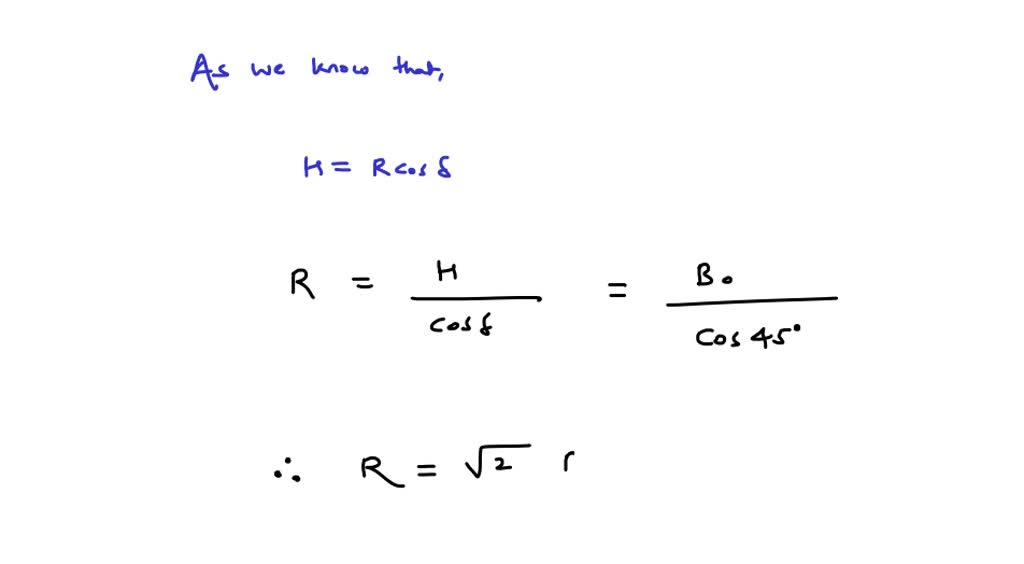 As we know that,
H = R cos δ
R = H / cos δ = B₀ / cos 45°
∴ R = √2